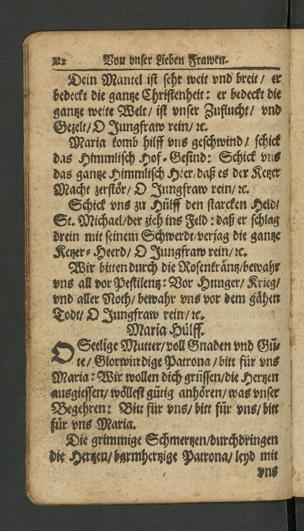 112 Von vnser Lieben Frawen.
Dein Mantel ist sehr weit vnd breit / er
bedeckt die gantze Christenheit: er bedeckt die
gantze weite Welt / ist vnser Zuflucht / vnd
Gezelt / O Jungfraw rein / ꝛc.
Maria komb hilff vns geschwind / schick
das Himmlisch Hof-Gesind: Schick vns
das gantze Himmlisch Heer, daß es der Ketzer
Macht zerstör / O Jungfraw rein / ꝛc.
Schick vns zu Hülff den starcken Held /
St. Michael / der zieh ins Feld: daß er schlag
drein mit seinem Schwerdt / verjag die gantze
Ketzer-Heerd / O Jungfraw rein / ꝛc.
Wir bitten durch die Rosenkräntz / bewahr
vns all vor Pestilentz: Vor Hunger / Krieg /
vnd aller Noth / bewahr vns vor dem gähen
Todt / O Jungfraw rein / ꝛc.
Maria Hülff.
O Seelige Mutter / voll Gnaden vnd Gü-
te / Glorwürdige Patrona / bitt für vns
Maria: Wir wollen dich grüssen / die Hertzen
ausgiessen / wöllest gütig anhören / was vnser
Begehren: Bitt für vns / bitt für vns / bitt
für vns Maria.
Die grimmige Schmertzen / durchdringen
die Hertzen / barmhertzige Patrona / leyd mit
vns